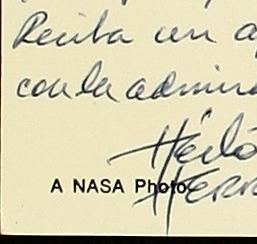 Reciba un a
con la admira
Héctor
A NASA Photo
HERN